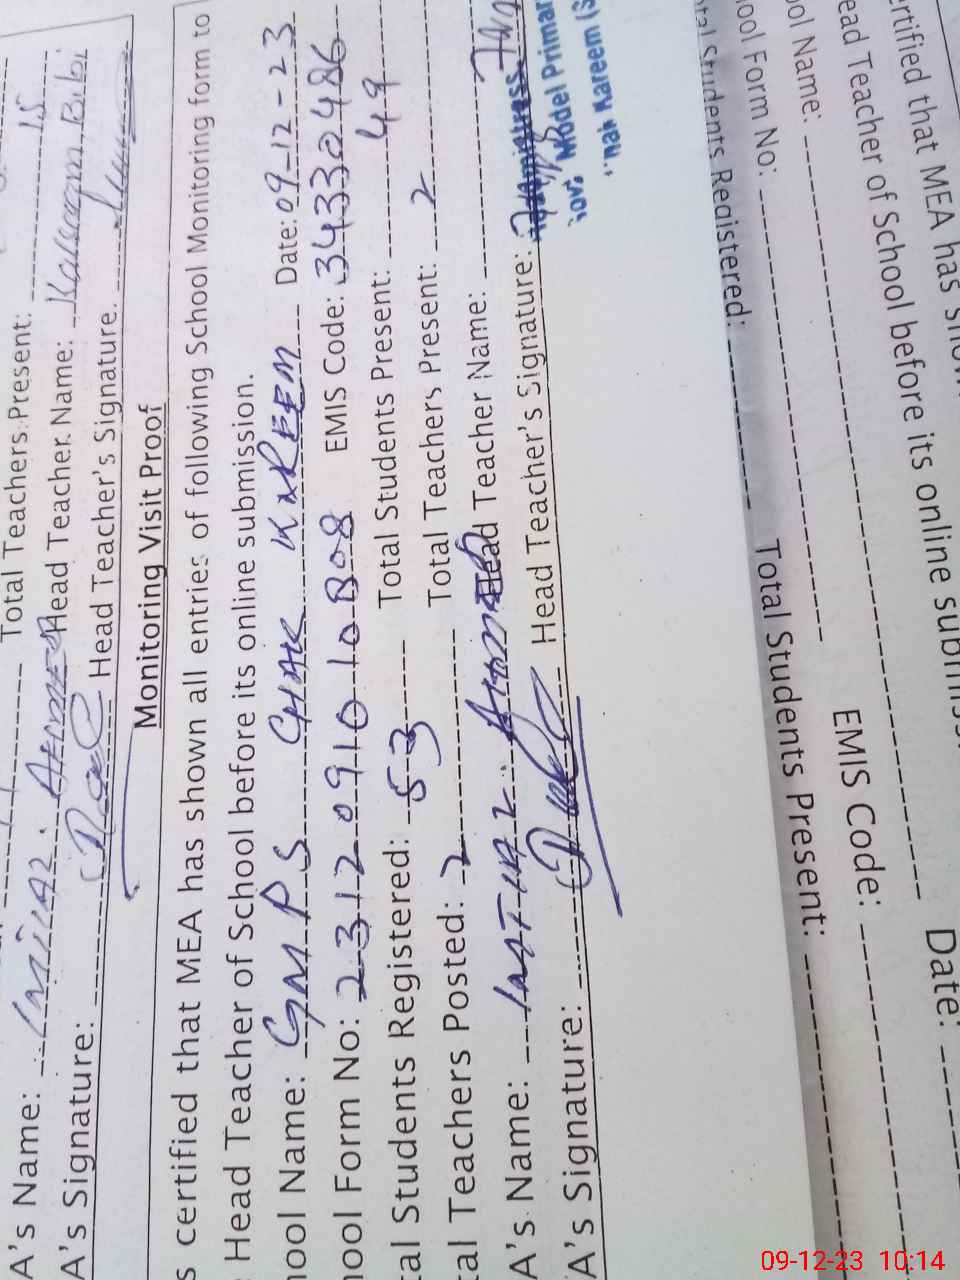 Total Teachers Present: 15
A's Name: Imtiaz Ahmed Head Teacher Name: Kalsoom Bibi
A's Signature: Head Teacher's Signature.
Monitoring Visit Proof
s certified that MEA has shown all entries of following School Monitoring form to
Head Teacher of School before its online submission.
hool Name: GMPS CHAK KAREEM Date: 09-12-23
hool Form No: 231209101008 EMIS Code: 34330486
tal Students Registered: 53 Total Students Present: 49
tal Teachers Posted: 2 Total Teachers Present: 2
A's Name: Imtiaz Ahmed Head Teacher Name:
A's Signature: Head Teacher's Signature:
Model Primar
Kareem
ertified that MEA has shown
ead Teacher of School before its online submiss
ool Name: Date:
ool Form No: EMIS Code:
tal Students Registered: Total Students Present:
09-12-23 10:14